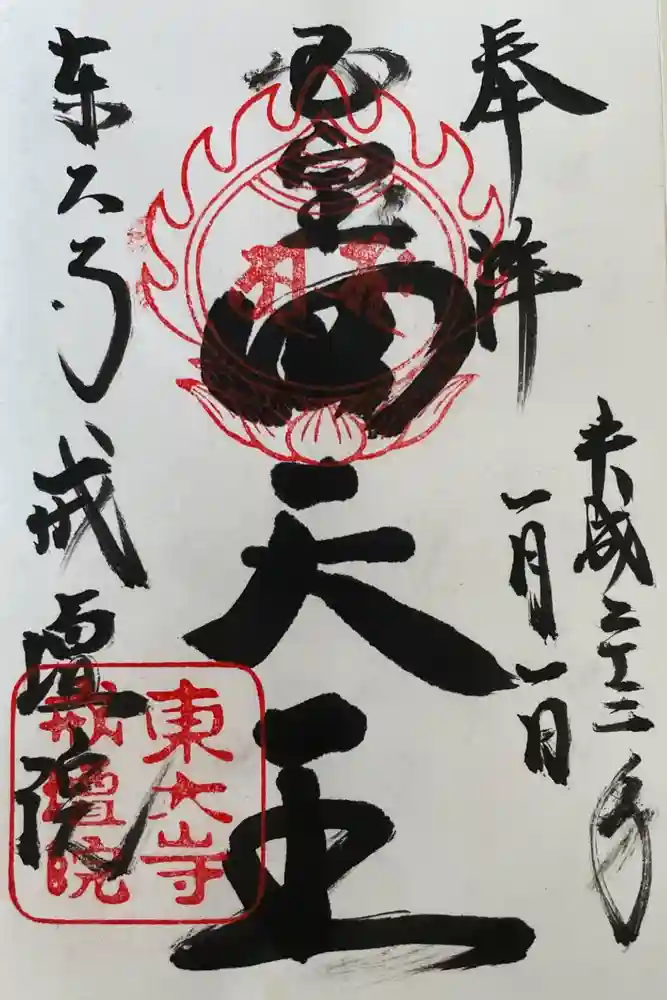 奉拝
平成二十三年
一月一日
国宝四天王
東大寺戒壇院
東大寺
戒壇院